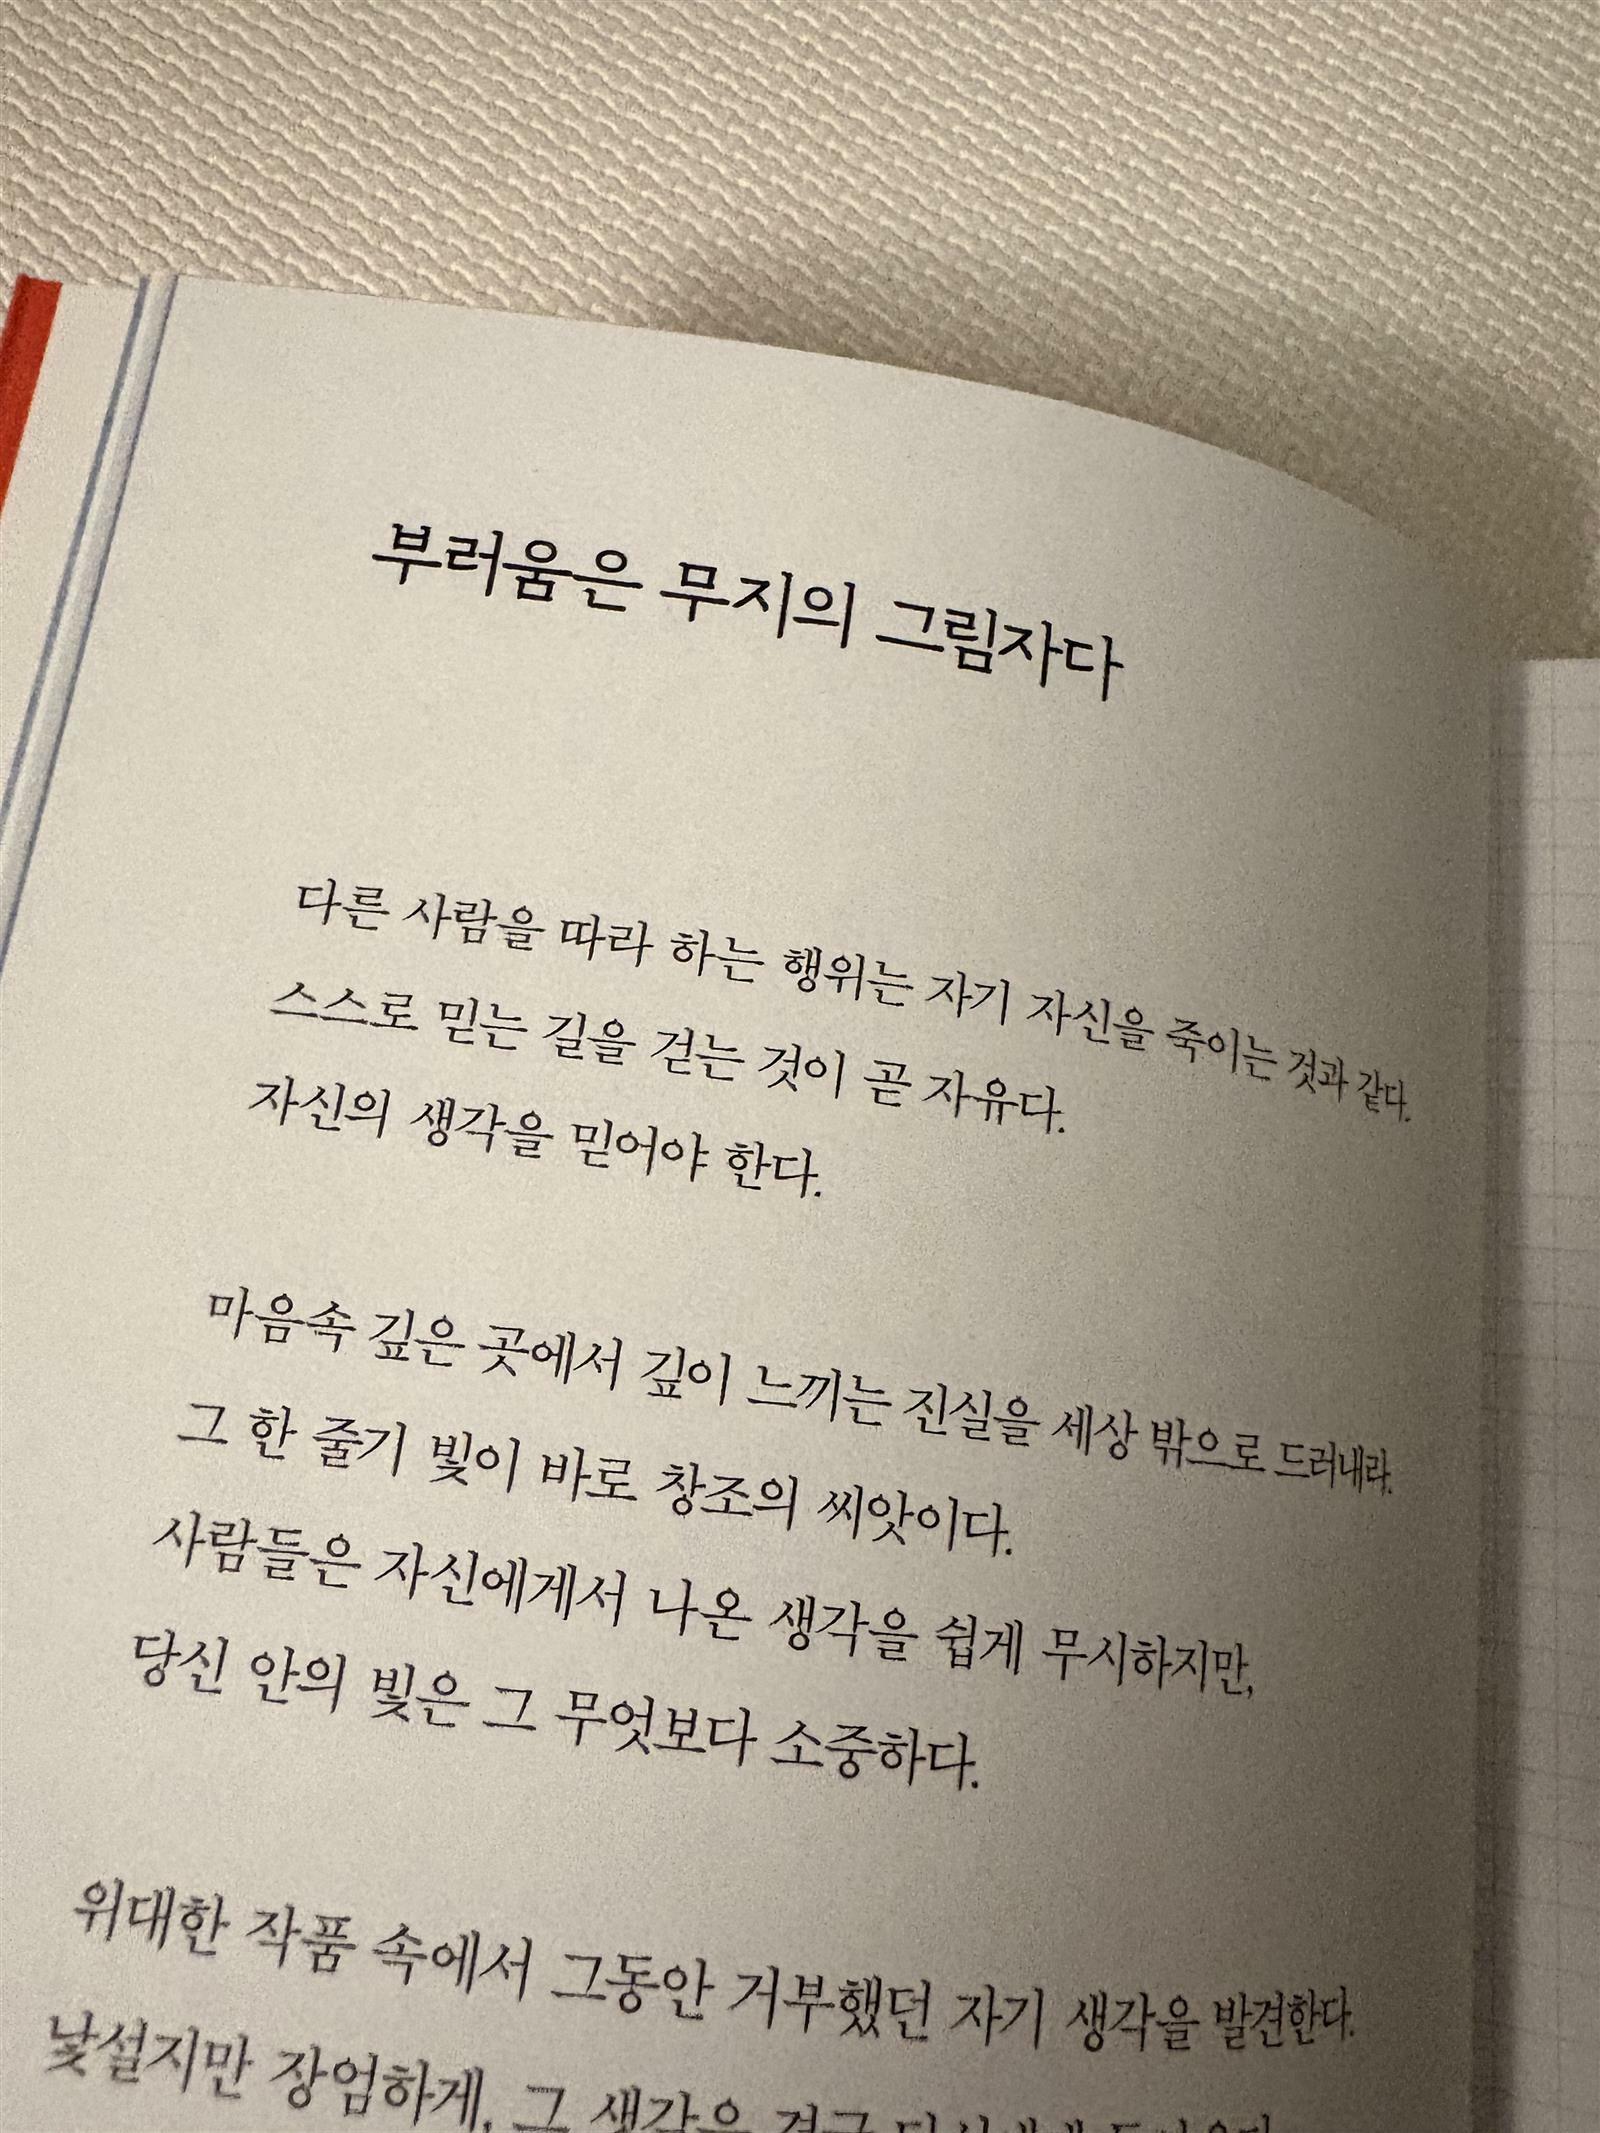 부러움은 무지의 그림자다
다른 사람을 따라 하는 행위는 자기 자신을 죽이는 것과 같다.
스스로 믿는 길을 걷는 것이 곧 자유다.
자신의 생각을 믿어야 한다.
마음속 깊은 곳에서 깊이 느끼는 진실을 세상 밖으로 드러내라.
그 한 줄기 빛이 바로 창조의 씨앗이다.
사람들은 자신에게서 나온 생각을 쉽게 무시하지만,
당신 안의 빛은 그 무엇보다 소중하다.
위대한 작품 속에서 그동안 거부했던 자기 생각을 발견한다.
낯설지만 장엄하게, 그 생각은